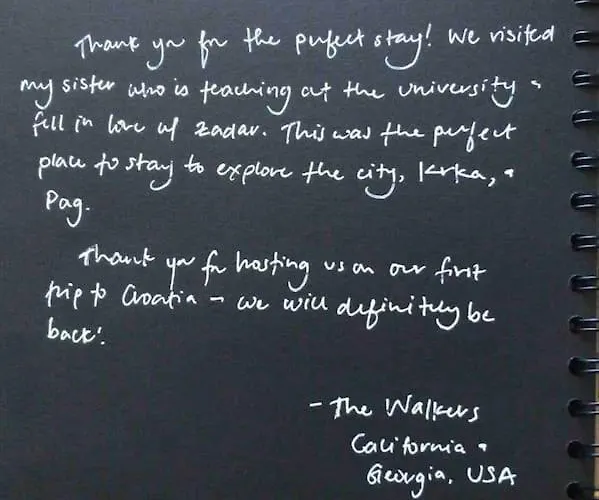 Thank you for the perfect stay! We visited
my sister who is teaching at the university +
fell in love w/ Zadar. This was the perfect
place to stay to explore the city, Krka, +
Pag.
Thank you for hosting us on our first
trip to Croatia – we will definitely be
back!
– The Walkers
California +
Georgia, USA